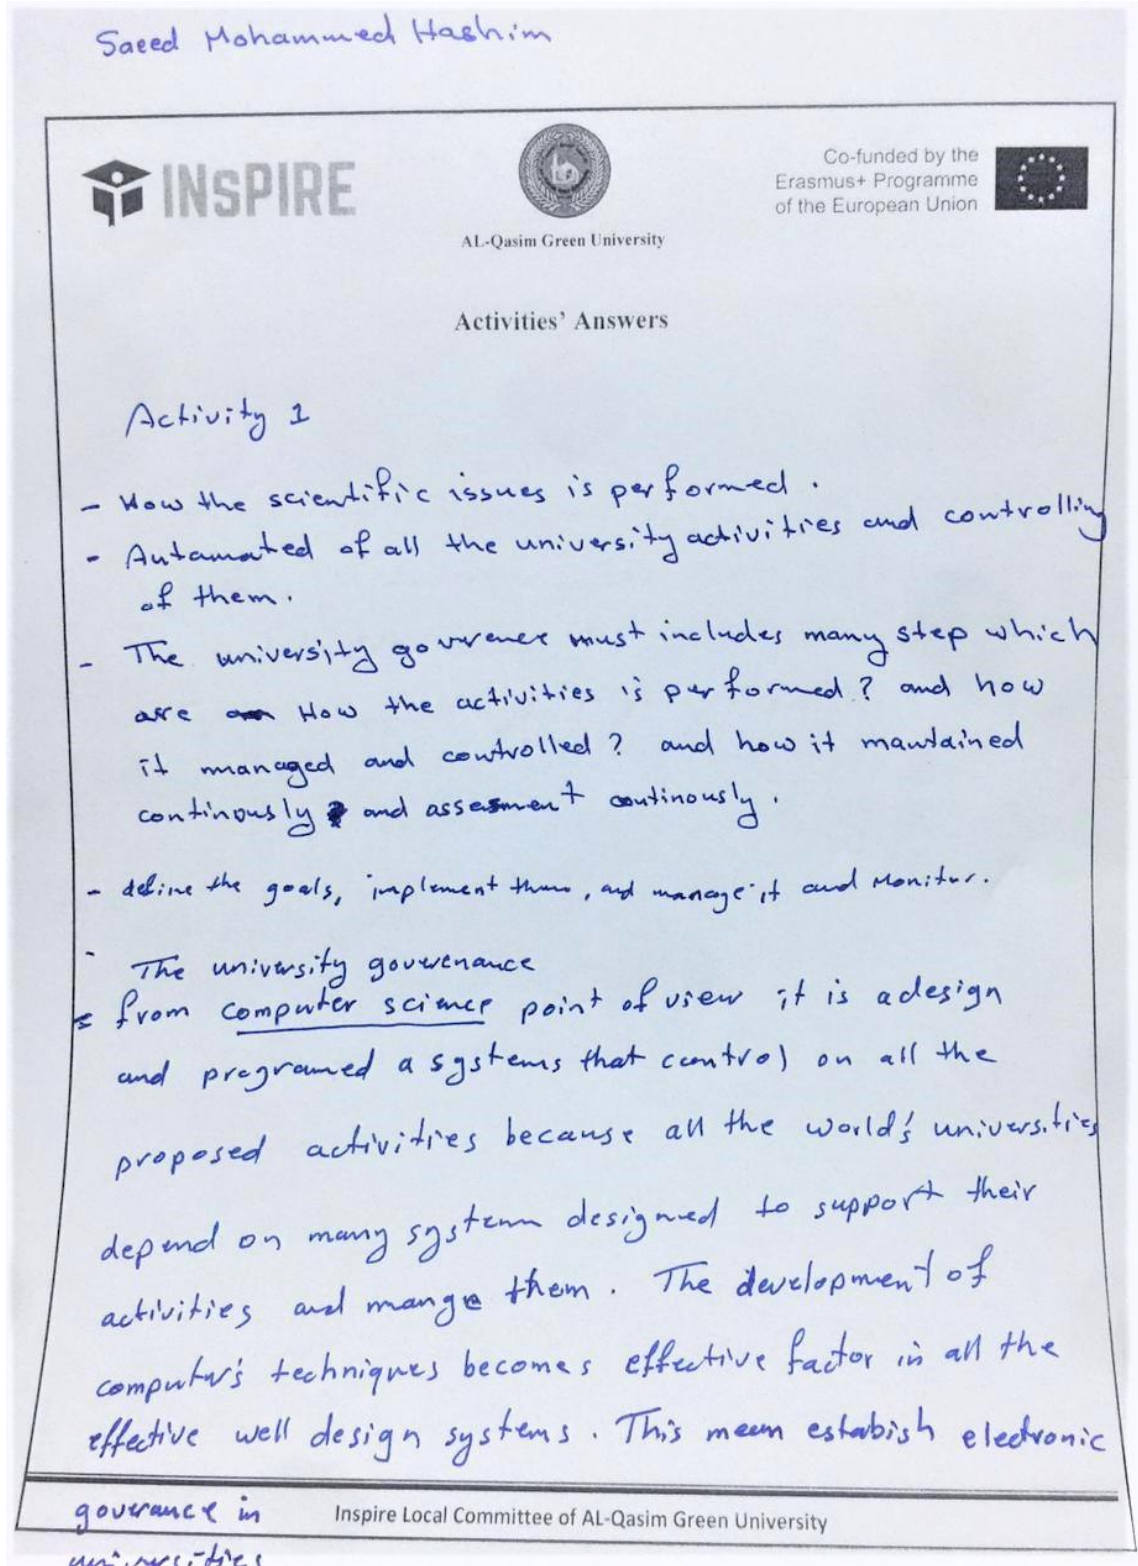 Saeed Mohammed Hashim
INSPIRE
AL-Qasim Green University
Co-funded by the
Erasmus+ Programme
of the European Union
Activities' Answers
Activity 1
- How the scientific issues is performed.
- Automated of all the university activities and controlling
of them.
- The university goverence must includes many step which
are How the activities is performed? and how
it managed and controlled? and how it maintained
continously and assesment continously.
- define the goals, implement them, and manage it and Monitor.
- The university gouverenance
from computer science point of view it is a design
and programed a systems that control on all the
proposed activities because all the world's universities
depend on many system designed to support their
activities and mange them. The development of
computer's techniques becomes effective factor in all the
effective well design systems. This mean estabish electronic
goverance in
universities
Inspire Local Committee of AL-Qasim Green University